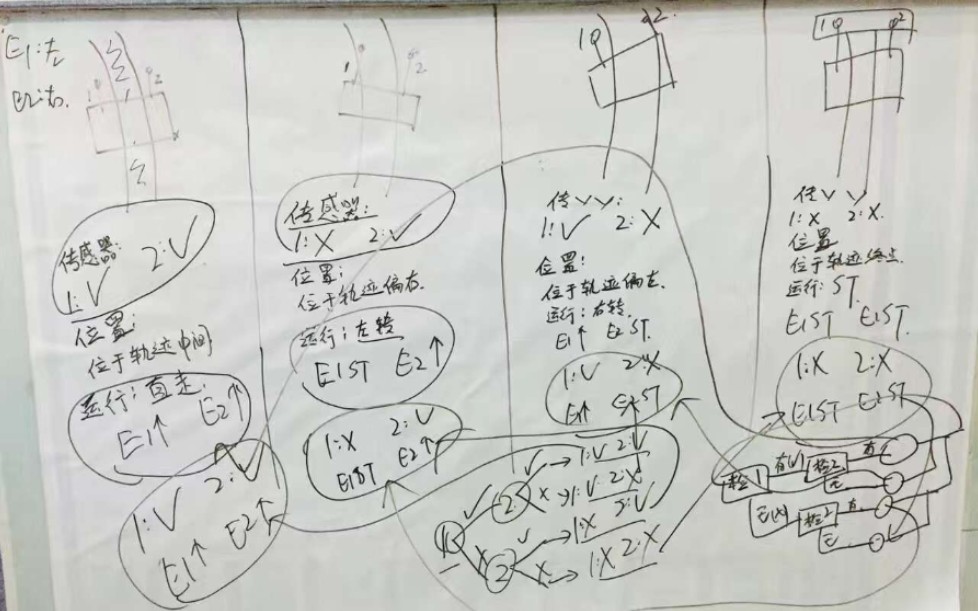 E1:左
E2:右.
1 2
传感器:
1:V 2:V
位置:
位于轨迹中间
运行:直走.
E1↑ E2↑
1:V 2:V
E1↑ E2↑
1 2
传感器:
1:X 2:V
位置:
位于轨迹偏右.
运行:左转
E1ST E2↑
1:X 2:V
E1ST E2↑
1 2
传VV:
1:V 2:X
位置:
位于轨迹偏左.
运行:右转.
E1↑ E2ST.
1:V 2:X
E1↑ E2ST
V → 1:V 2:V
V 2 X → 1:V 2:X
1
X 2 V → 1:X 2:V
X → 1:X 2:X
1 2
传VV
1:X 2:X.
位置
位于轨迹终点.
运行:ST.
E1ST E1ST.
1:X 2:X
E1ST E2ST
检1 有(V) 检2 有
无
无(X) 检2 有
无